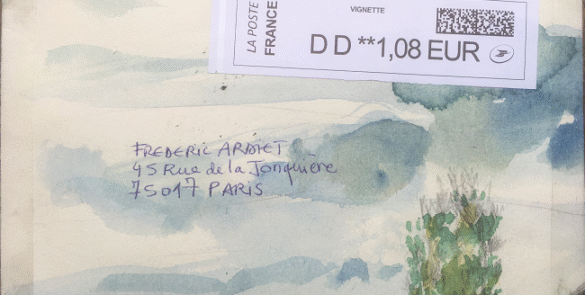 LA POSTE
FRANCE
VIGNETTE
D D **1,08 EUR
FREDERIC ARDIET
45 Rue de la Jonquière
75017 PARIS